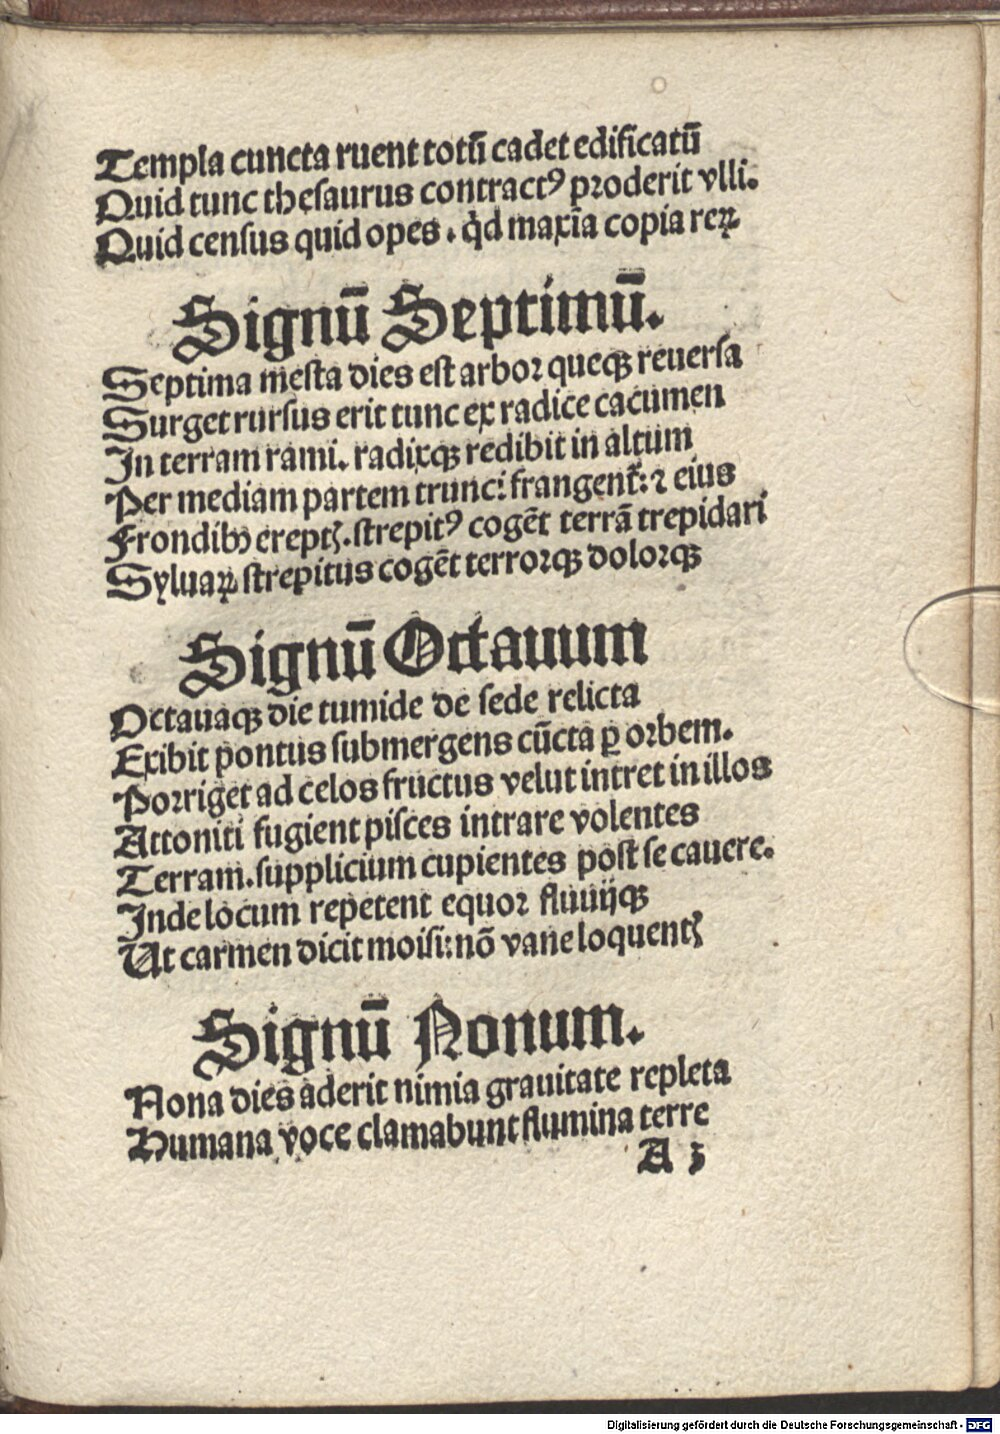 Templa cuncta ruent totū cadet edificatū
Quid tunc thesaurus contractꝰ proderit vlli.
Quid census quid opes . qͥd maxīa copia reꝝ
Signū Septimū.
Septima mesta dies est arbor queqꝫ reuersa
Surget rursus erit tunc ex radice cacumen
In terram rami. radixqꝫ redibit in altum
Per mediam partem trunci frangent᷑: ⁊ eius
Frondibꝫ ereptꝭ. strepitꝰ cogēt terrā trepidari
Syluaꝝ strepitus cogēt terrorqꝫ dolorqꝫ
Signū Octauum
Octauaqꝫ die tumide de sede relicta
Exibit pontus submergens cūcta ꝑ orbem.
Porriget ad celos fructus velut intret in illos
Attoniti fugient pisces intrare volentes
Terram. supplicium cupientes post se cauere.
Inde locum repetent equor fluuijqꝫ
Ut carmen dicit moisi: nō vane loquentꝭ
Signū Nonum.
Nona dies aderit nimia grauitate repleta
Humana voce clamabunt flumina terre
A 3
Digitalisierung gefördert durch die Deutsche Forschungsgemeinschaft - DFG